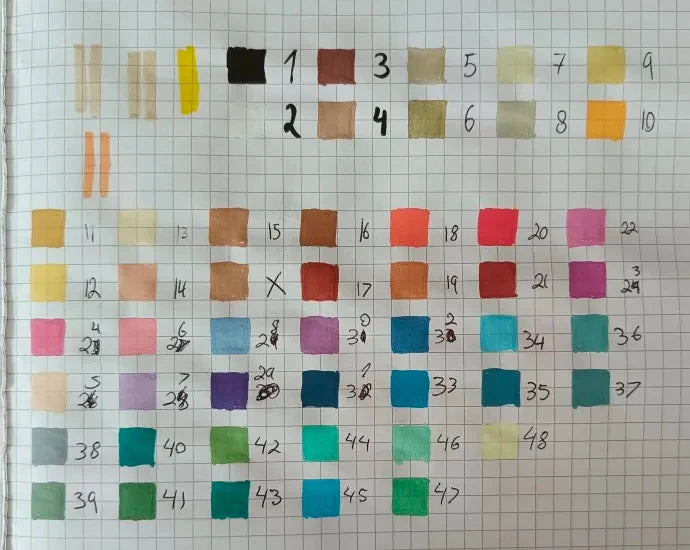 1 3 5 7 9
2 4 6 8 10
11 13 15 16 18 20 22
12 14 X 17 19 21 23
24 26 28 30 32 34 36
25 27 29 31 33 35 37
38 40 42 44 46 48
39 41 43 45 47